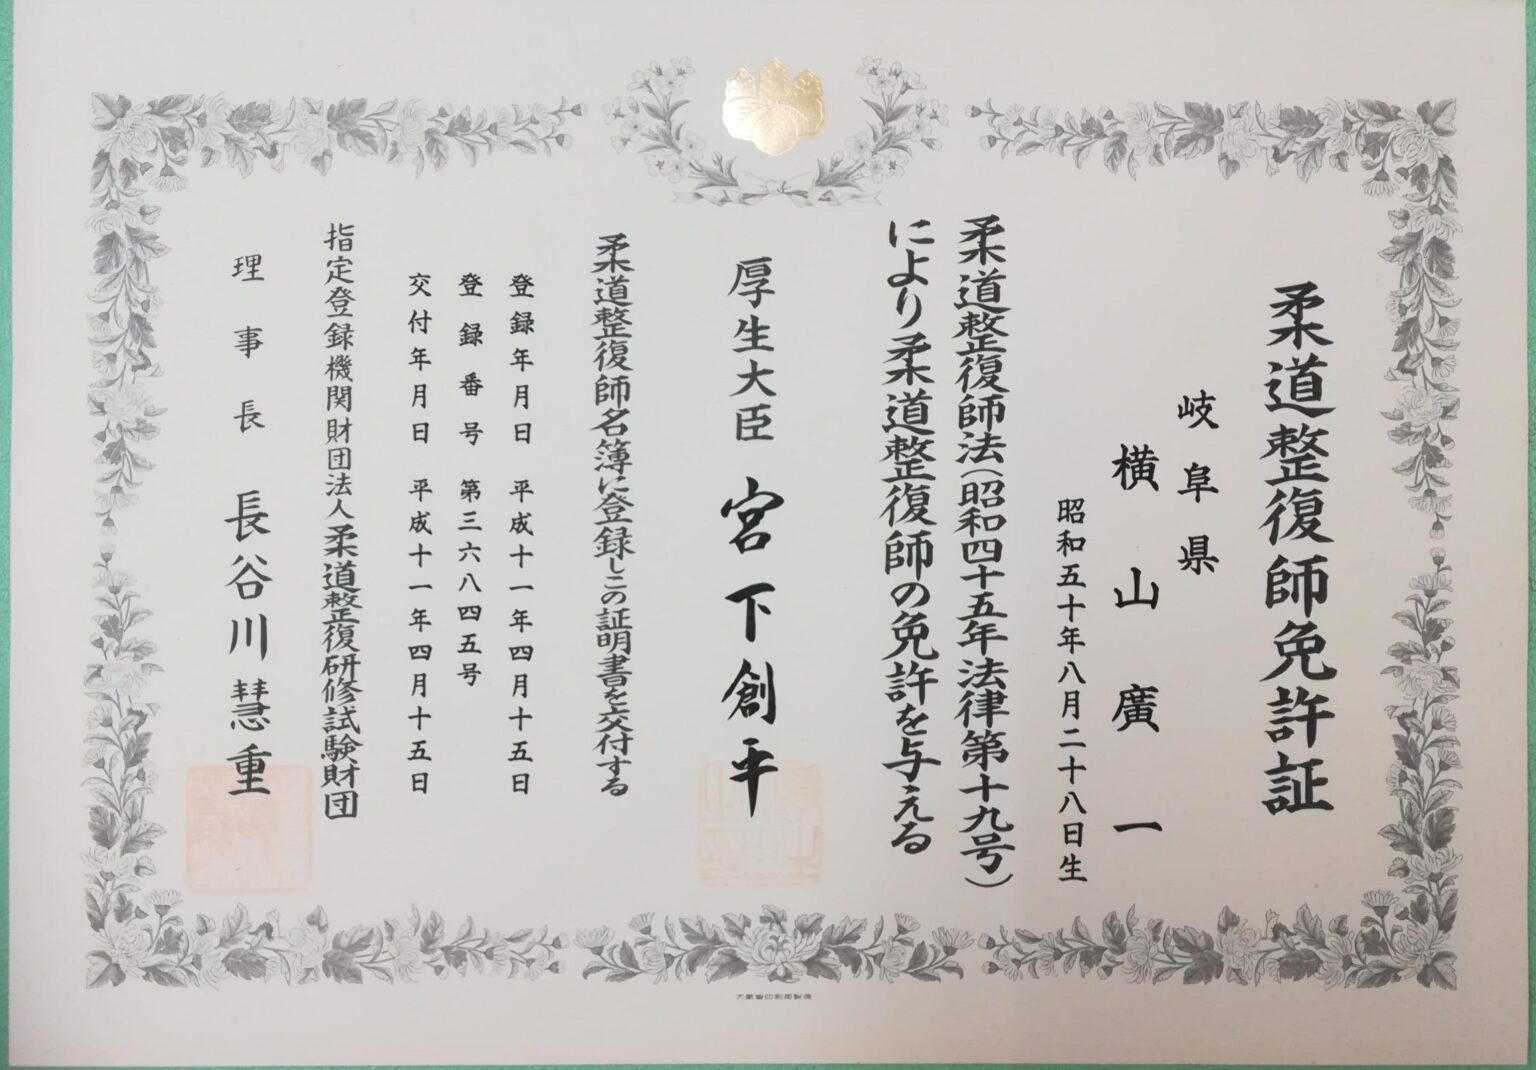 柔道整復師免許証
岐阜県
横山廣一
昭和五十年八月二十八日生
柔道整復師法（昭和四十五年法律第十九号）
により柔道整復師の免許を与える
厚生大臣 宮下創平
柔道整復師名簿に登録しこの証明書を交付する
登録年月日 平成十一年四月十五日
登録番号 第三六八四五号
交付年月日 平成十一年四月十五日
指定登録機関財団法人柔道整復研修試験財団
理事長 長谷川慧重
大蔵省印刷局製造